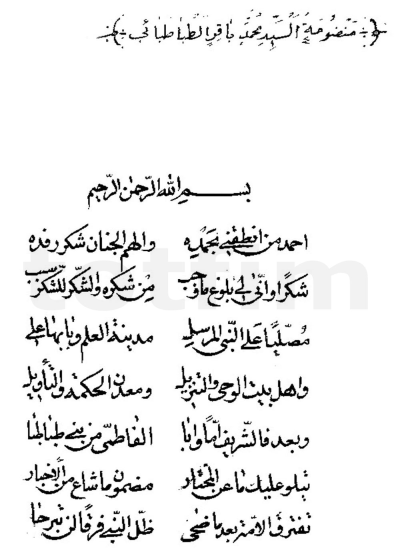 منضومة السيد محمد باقر الطباطبائي
بسم الله الرحمن الرحيم
احمد من انطقني بحمده والهم الجنان شكر رفده
شكرا وانى لي بلوغ ما وجب من شكره والشكر للشكر سبب
مصليا على النبي المرسل مدينة العلم وبابها علي
واهل بيت الوحي والتنزيل ومعدن الحكمة والتأويل
وبعد فالشريف اما وابا الفاطمي من بني طباطبا
يتلو عليك ما عن المختار مضمون ما شاع من الاخبار
تفترق الامة بعد ما مضى ظل النبي فرقا لن